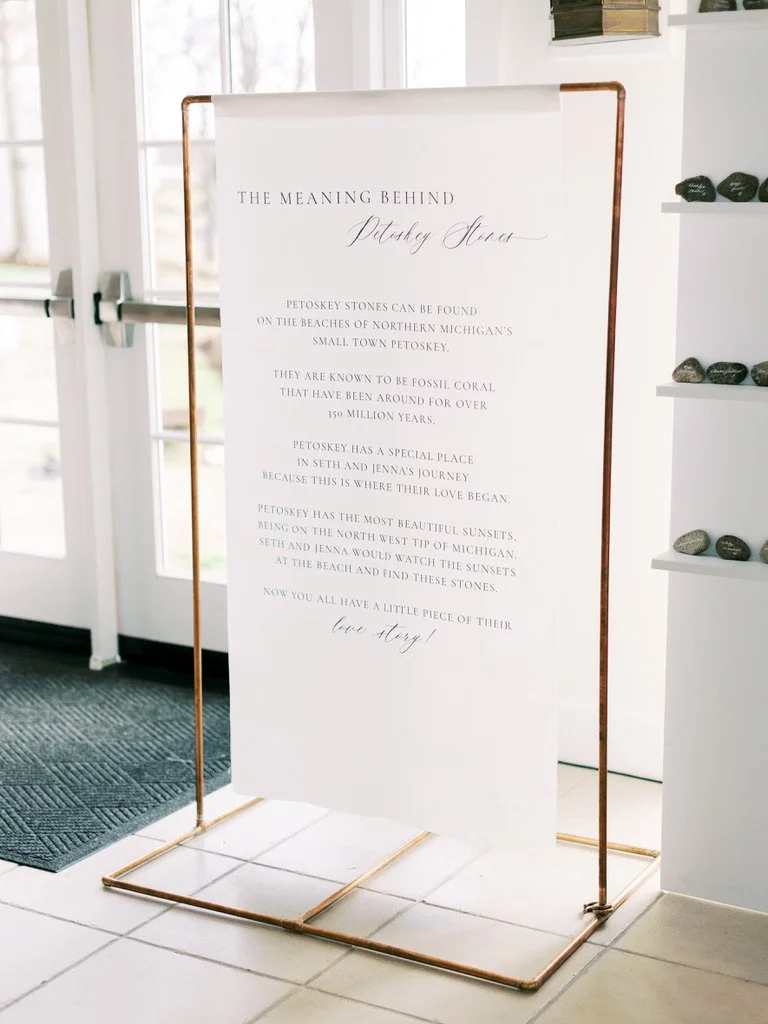 THE MEANING BEHIND
Petoskey Stones
PETOSKEY STONES CAN BE FOUND
ON THE BEACHES OF NORTHERN MICHIGAN'S
SMALL TOWN PETOSKEY.
THEY ARE KNOWN TO BE FOSSIL CORAL
THAT HAVE BEEN AROUND FOR OVER
350 MILLION YEARS.
PETOSKEY HAS A SPECIAL PLACE
IN SETH AND JENNA'S JOURNEY
BECAUSE THIS IS WHERE THEIR LOVE BEGAN.
PETOSKEY HAS THE MOST BEAUTIFUL SUNSETS,
BEING ON THE NORTH WEST TIP OF MICHIGAN.
SETH AND JENNA WOULD WATCH THE SUNSETS
AT THE BEACH AND FIND THESE STONES.
NOW YOU ALL HAVE A LITTLE PIECE OF THEIR
love story!